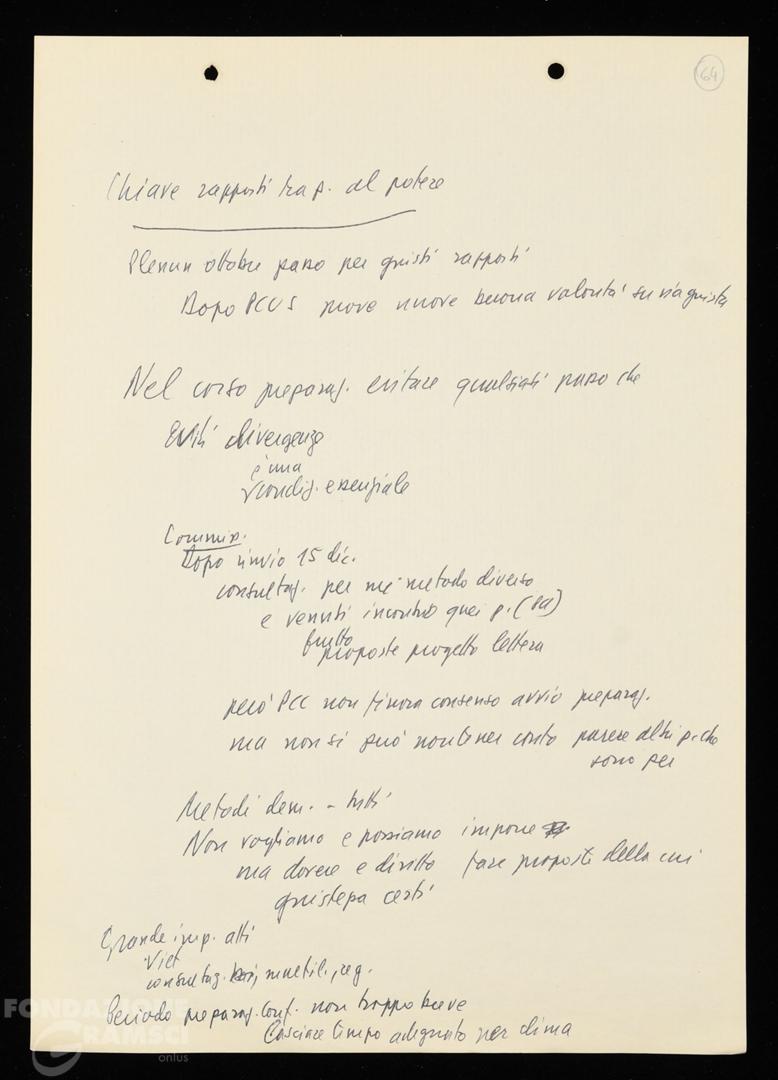 64
Chiave rapporti tra p. al potere
Plenum ottobre passo per giusti rapporti
Dopo PCUS prove nuove buona volontà su via giusta
Nel corso preparaz. evitare qualsiasi passo che
divergenze
è una
condiz. essenziale
Commiss.
Dopo invio 15 dic.
consultaz. per me metodo diverso
e venuti incontro quei p.
frutto
proposte progetto lettera
però PCC non finora consenso avvio preparaz.
ma non si può non tener conto parere altri p. che
sono per
Metodi dem. - tutti
Non vogliamo e possiamo imporre
ma dovere e diritto fare proposte della cui
giustezza certi
Grande imp. atti
Viet
consultaz. multil., reg.
Periodo preparaz. conf. non troppo breve
Lasciare tempo adeguato per clima
FONDAZIONE
GRAMSCI
onlus